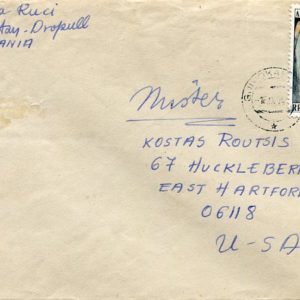 a Ruci
tay - Dropull
ANIA
Mister
KOSTAS ROUTSIS
67 HUCKLEBER
EAST HARTFOR
06118
U-SA